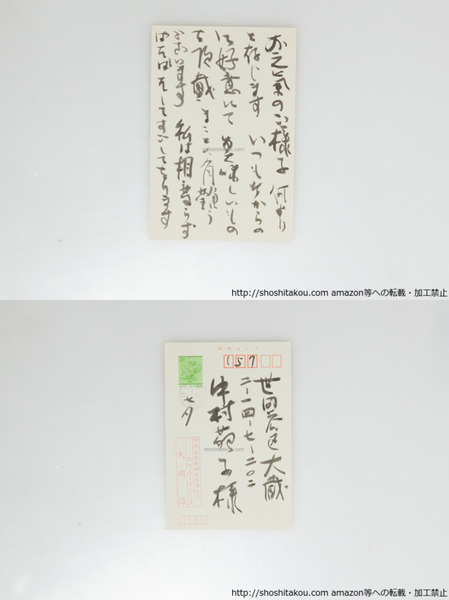 お元気のご様子 何より
と存じます いつも乍らの
御好意にて 美味しいもの
を頂戴 まことに有難う
ございます 私は相変らず
してすごしております
http://shoshitakou.com amazon等への転載・加工禁止
157
世田谷区大蔵
二-一四-七-二〇二
中村苑子様
七月
大岡信
http://shoshitakou.com amazon等への転載・加工禁止